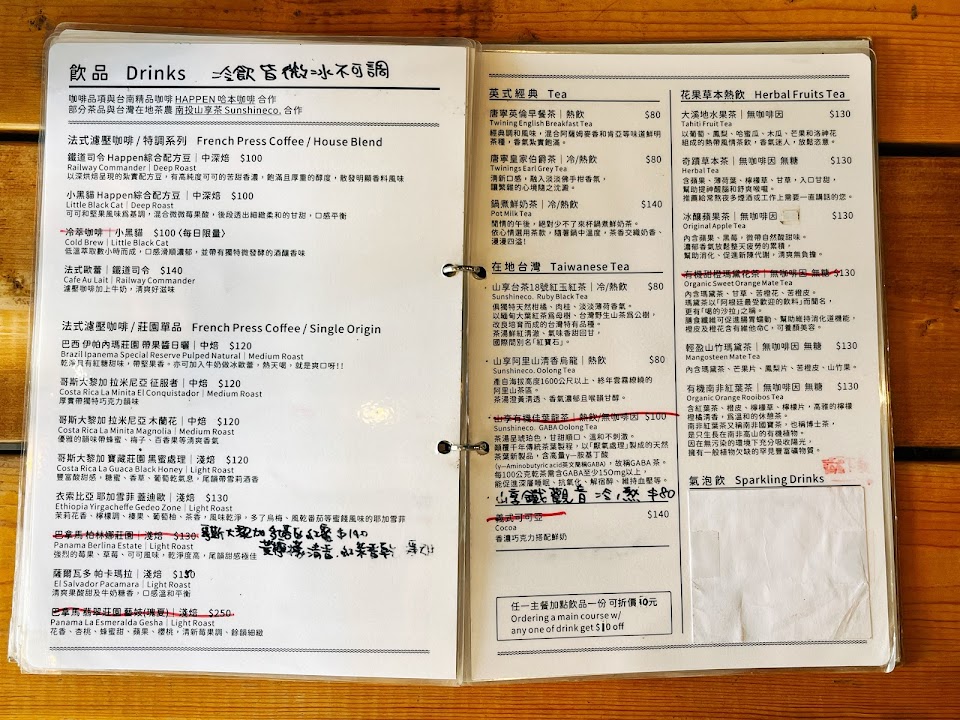 飲品 Drinks 冷飲皆微冰不可調
咖啡品項與台南精品咖啡 HAPPEN 哈本咖啡 合作
部分茶品與台灣在地茶農 南投山享茶 Sunshineco. 合作
法式濾壓咖啡 / 特調系列 French Press Coffee / House Blend
鐵道司令 Happen綜合配方豆｜中深焙 $100
Railway Commander｜Deep Roast
以深烘焙呈現的紮實配方豆，有高純度可可的苦甜香濃，飽滿且厚重的醇度，散發明顯香料風味
小黑貓 Happen綜合配方豆｜中深焙 $100
Little Black Cat｜Deep Roast
可可和堅果風味為基調，混合微微莓果酸，後段透出細緻柔和的甘甜，口感平衡
冷萃咖啡｜小黑貓 $100〈每日限量〉
Cold Brew｜Little Black Cat
低溫萃取數小時而成，口感滑順濃郁，並帶有獨特微發酵的酒釀香味
法式歐蕾｜鐵道司令 $140
Cafe Au Lait｜Railway Commander
濾壓咖啡加上牛奶，清爽好滋味
法式濾壓咖啡 / 莊園單品 French Press Coffee / Single Origin
巴西 伊帕內瑪莊園 帶果醬日曬｜中焙 $120
Brazil Ipanema Special Reserve Pulped Natural｜Medium Roast
乾淨具有紅糖甜味，帶堅果香。亦可加入牛奶做冰歐蕾，熱天喝，就是爽口呀!!
哥斯大黎加 拉米尼亞 征服者｜中焙 $120
Costa Rica La Minita El Conquistador｜Medium Roast
厚實帶獨特巧克力韻味
哥斯大黎加 拉米尼亞 木蘭花｜中焙 $120
Costa Rica La Minita Magnolia｜Medium Roast
優雅的韻味帶蜂蜜、梅子、百香果等清爽香氣
哥斯大黎加 寶藏莊園 黑蜜處理｜淺焙 $120
Costa Rica La Guaca Black Honey｜Light Roast
豐富酸甜感，糖蜜、香草、葡萄乾氣息，尾韻帶雪莉酒香
衣索比亞 耶加雪菲 蓋迪歐｜淺焙 $130
Ethiopia Yirgacheffe Gedeo Zone｜Light Roast
茉莉花香、檸檬調、榛果、葡萄柚、茶香，風味乾淨，多了烏梅、風乾番茄等蜜餞風味的耶加雪菲
巴拿馬 柏林娜莊園｜淺焙 $130
Panama Berlina Estate｜Light Roast
強烈的莓果、草莓、可可風味，乾淨度高，尾韻甜感極佳
薩爾瓦多 帕卡瑪拉｜淺焙 $150
El Salvador Pacamara｜Light Roast
清爽果酸甜及牛奶糖香，口感溫和平衡
巴拿馬 翡翠莊園 藝妓(瑰夏)｜淺焙 $250
Panama La Esmeralda Gesha｜Light Roast
花香、杏桃、蜂蜜甜、蘋果、櫻桃，清新莓果調、餘韻細緻
英式經典 Tea
唐寧英倫早餐茶｜熱飲 $80
Twining English Breakfast Tea
經典調和風味，混合阿薩姆麥香和肯亞等味道鮮明
茶種，香氣紮實飽滿。
唐寧皇家伯爵茶｜冷/熱飲 $80
Twinings Earl Grey Tea
清新口感，融入淡淡佛手柑香氣，
讓繁雜的心境隨之沈澱。
鍋煮鮮奶茶｜冷/熱飲 $140
Pot Milk Tea
閒情的午後，絕對少不了來杯鍋煮鮮奶茶。
依心情選用茶款，隨著鍋中溫度，茶香交織奶香、
漫漫四溢!
在地台灣 Taiwanese Tea
山享台茶18號紅玉紅茶｜冷/熱飲 $80
Sunshineco. Ruby Black Tea
俱獨特天然柑橘、肉桂、淡淡薄荷香氣。
以緬甸大葉紅茶為母樹、台灣野生山茶為父樹，
改良培育而成的台灣特有品種。
茶湯鮮紅清澈、氣味香甜回甘，
國際間別名「紅寶石」。
山享阿里山清香烏龍｜熱飲 $80
Sunshineco. Oolong Tea
產自海拔高度1600公尺以上、終年雲霧繚繞的
阿里山茶區。
茶湯澄黃清透、香氣濃郁且喉韻甘醇。
山享有機佳葉龍茶｜熱飲/無咖啡因 $100
Sunshineco. GABA Oolong Tea
茶湯呈琥珀色，甘甜順口、溫和不刺激。
顛覆千年傳統茶葉製程，以「厭氧處理」製成的天然
茶葉新製品，含高量γ-胺基丁酸
(γ—Aminobutyric acid英文簡稱GABA)，故稱GABA茶。
每100公克乾茶需含GABA至少150mg以上，
能促進深層睡眠、抗氧化、解宿醉、維持血壓等。
山享鐵觀音 冷/熱 $80
義式可可亞 $140
Cocoa
香濃巧克力搭配鮮奶
任一主餐加點飲品一份 可折價10元
Ordering a main course w/
any one of drink get $10 off
花果草本熱飲 Herbal Fruits Tea
大溪地水果茶｜無咖啡因 $130
Tahiti Fruit Tea
以葡萄、鳳梨、哈蜜瓜、木瓜、芒果和洛神花
組成的熱帶風情茶飲，香氣迷人，放鬆恣意。
奇蹟草本茶｜無咖啡因 無糖 $130
Herbal Tea
含蘋果、薄荷葉、檸檬草、甘草，入口甘甜，
幫助提神醒腦和舒爽喉嚨。
推薦給常熬夜多煙酒或工作上需要一直講話的您。
冰釀蘋果茶｜無咖啡因 $130
Original Apple Tea
內含蘋果、黑莓，微帶自然酸甜味。
濃郁香氣放鬆整天疲勞的累積，
幫助消化、促進新陳代謝，清爽無負擔。
有機甜橙瑪黛花茶｜無咖啡因 無糖 $130
Organic Sweet Orange Mate Tea
內含瑪黛茶、甘草、苦橙花、苦橙皮。
瑪黛茶以「阿根廷最受歡迎的飲料」而聞名，
更有「喝的沙拉」之稱。
膳食纖維可促進腸胃蠕動、幫助維持消化道機能，
橙皮及橙花含有維他命C，可養顏美容。
輕盈山竹瑪黛茶｜無咖啡因 無糖 $130
Mangosteen Mate Tea
內含瑪黛茶、芒果片、鳳梨片、苦橙皮、山竹果。
有機南非紅葉茶｜無咖啡因 無糖 $130
Organic Orange Rooibos Tea
含紅葉茶、橙皮、檸檬草、檸檬片，高雅的檸檬
橙橘清香，為溫和的休憩茶。
南非紅葉茶又稱南非國寶茶、也稱博士茶，
是只生長在南非高山的有機植物。
因在無污染的環境下充分吸收陽光，
擁有一般植物欠缺的罕見豐富礦物質。
氣泡飲 Sparkling Drinks